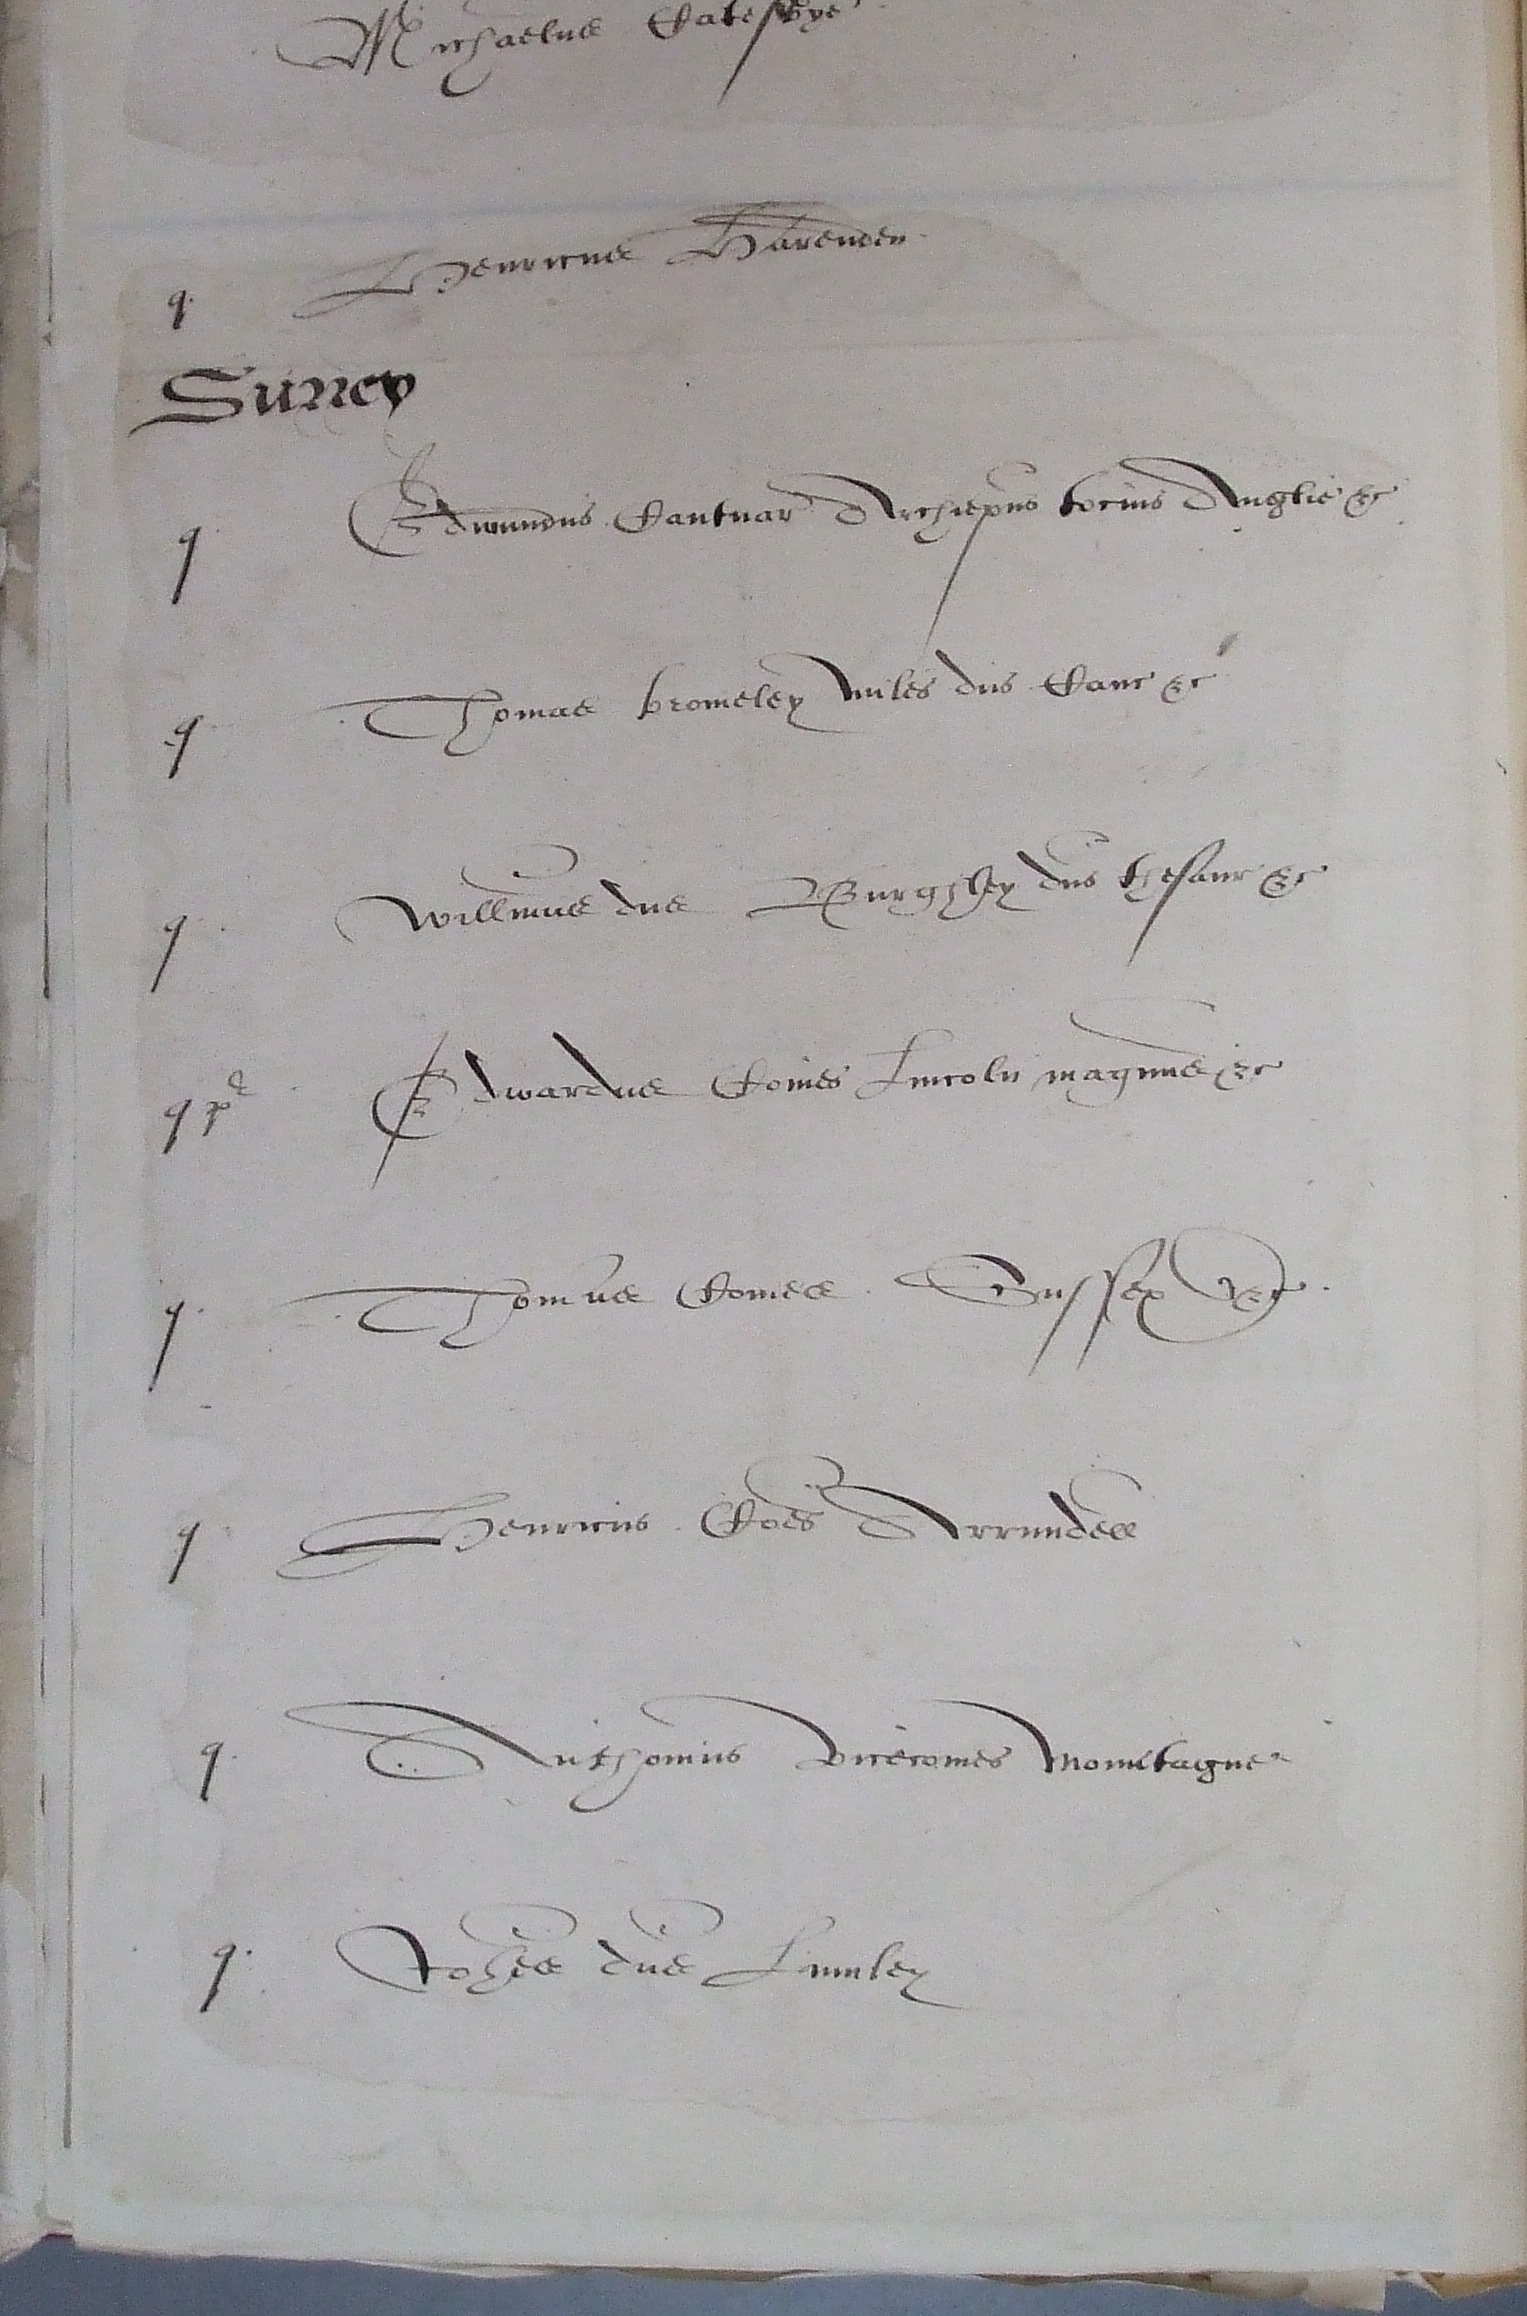 Michaelus Catesbye
q Henricus Harenden
Surrey
q Edmundus Cantuar Archiepus tocius Anglie &c
q Thomas bromeley miles dns Canc &c
q Willmus dns Burghley dns thesaur &c
q p Edwardus Comes Lincoln magnus &c
q Thomas Comes Sussex &c
q Henricus Coes Arrundell
q Anthonius vicecomes Mountague
q Johes dns Lumley